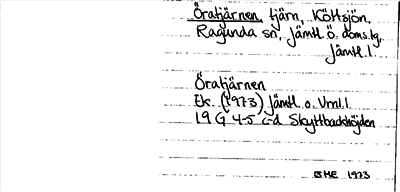 Öratjärnen, tjärn, Köttsjön,
Ragunda sn, Jämtl. Ö. doms.tg,
Jämtl. l.
Öratjärnen
Ek. (1973) Jämtl. o. Vnl. l.
19 G 4-5 c-d Skyttbackhöjden
BHE 1973